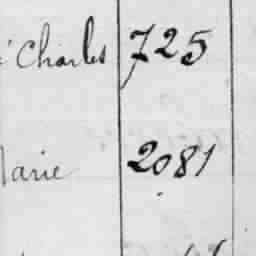 Charles 725
Marie 2081